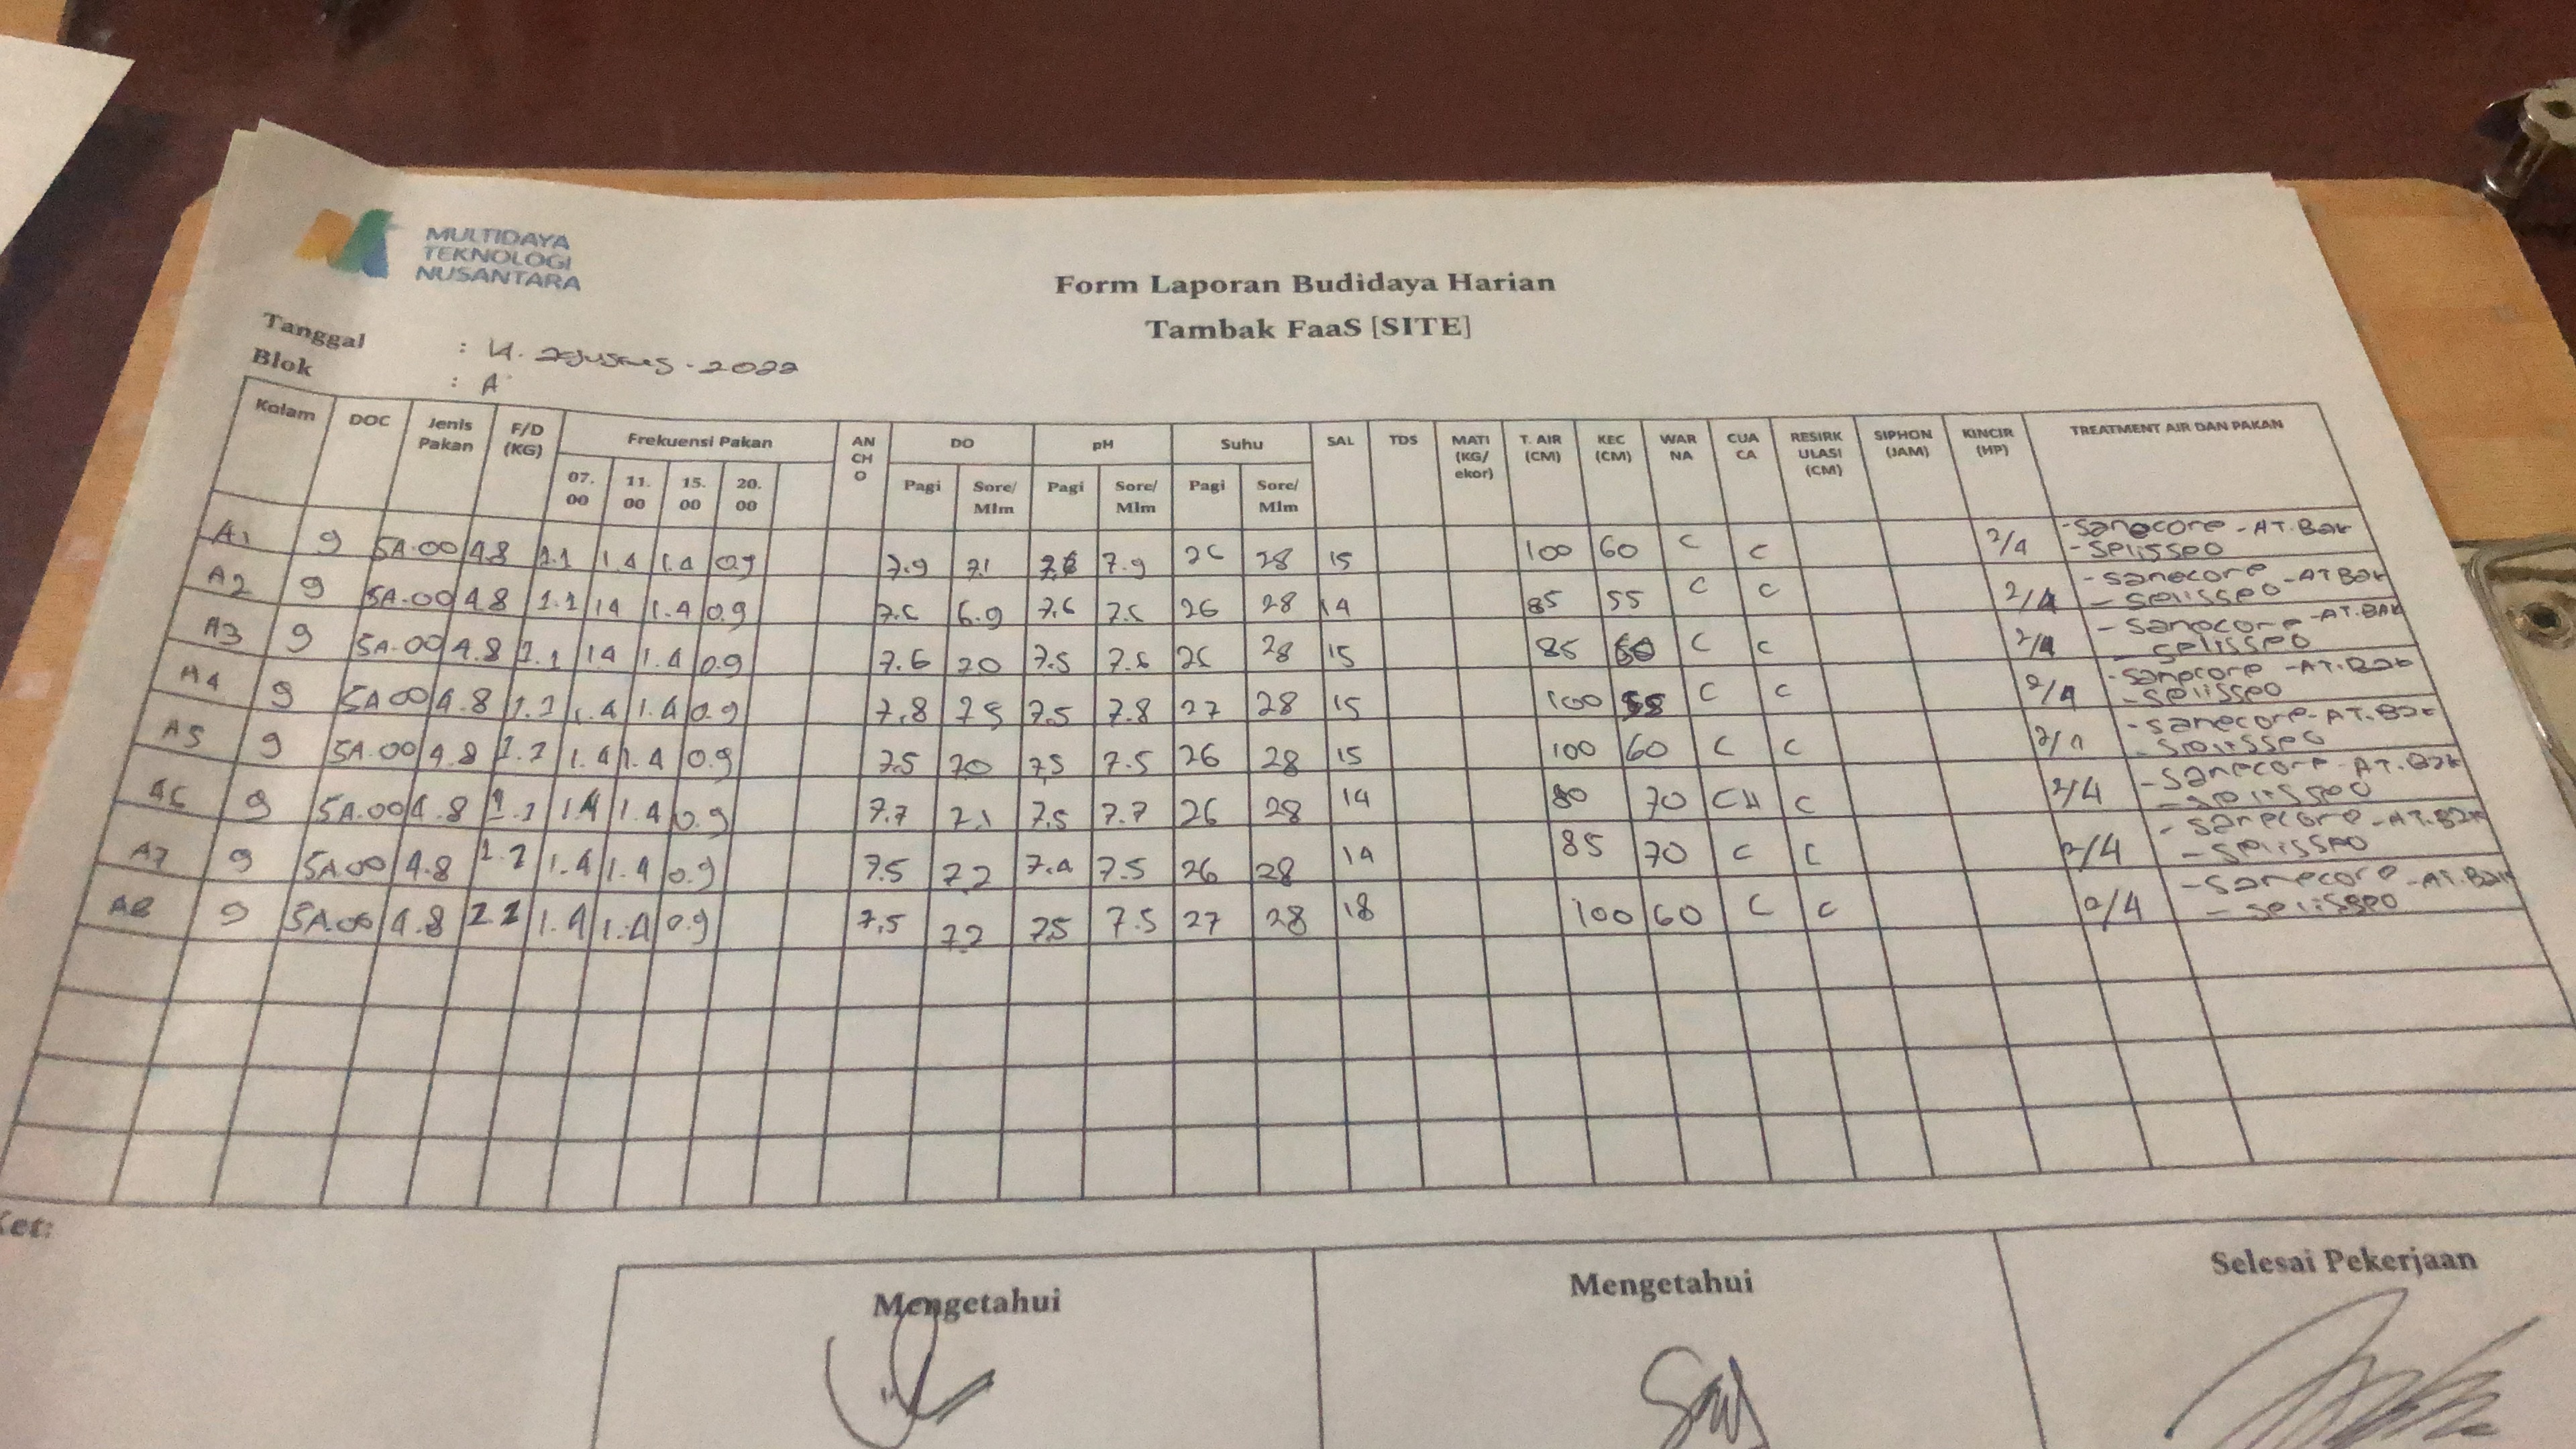 MULTIDAYA
TEKNOLOGI
NUSANTARA
Form Laporan Budidaya Harian
Tambak FaaS [SITE]
Tanggal : 14. Agustus. 2022
Blok : A
Kolam DOC Jenis Pakan F/D (KG) Frekuensi Pakan 07.00 11.00 15.00 20.00 ANCHO DO Pagi Sore/Mlm pH Pagi Sore/Mlm Suhu Pagi Sore/Mlm SAL TDS MATI (KG/ekor) T. AIR (CM) KEC (CM) WARNA CUACA RESIRKULASI (CM) SIPHON (JAM) KINCIR (HP) TREATMENT AIR DAN PAKAN
A1 9 SA.00 4.8 1.1 1.4 1.4 0.9 7.9 7.1 7.9 26 28 15 100 60 C C 2/4 - AT.Bak
A2 9 SA.00 4.8 1.1 1.4 1.4 0.9 7.6 6.9 7.6 7.6 26 28 14 85 55 C C 2/4 - AT Bak
A3 9 SA.00 4.8 1.1 1.4 1.4 0.9 7.6 7.0 7.5 7.6 26 28 15 85 60 C C 2/4 - AT.Bak
A4 9 SA 00 4.8 1.1 1.4 1.4 0.9 7.8 7.5 7.5 7.8 27 28 15 100 C C 2/4 - AT.Bak
A5 9 SA.00 4.8 1.1 1.4 1.4 0.9 7.5 7.0 7.5 7.5 26 28 15 100 60 C C 2/4 - AT.Bak
A6 9 SA.00 4.8 1.1 1.4 1.4 0.9 7.7 7.1 7.5 7.7 26 28 14 80 70 CH C 2/4 - AT.Bak
A7 9 SA 00 4.8 1.1 1.4 1.4 0.9 7.5 7.2 7.4 7.5 26 28 14 85 70 C C 2/4 - AT.Bak
A8 9 SA.00 4.8 1.4 1.4 0.9 7.5 7.2 7.5 7.5 27 28 18 100 60 C C 2/4 - AT.Bak
Ket:
Mengetahui Mengetahui Selesai Pekerjaan